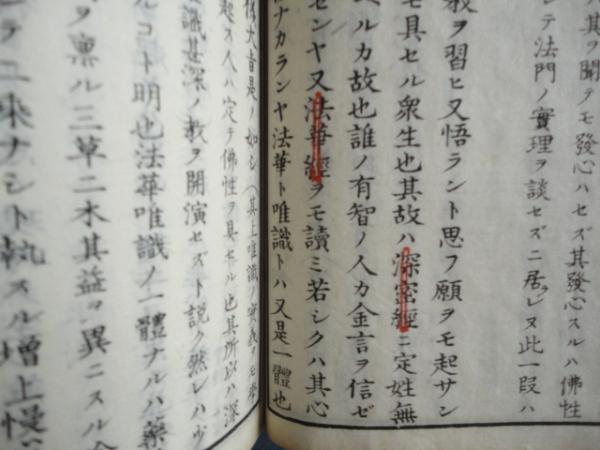 其ヲ聞テモ發心ハセズ其發心スルハ佛性
シテ法門ノ實理ヲ談セズニ居ラレヌ此一段ハ
教ヲ習ヒ又悟ラント思フ願ヲモ起サン
モ具セル衆生也其故ハ深密經ニ定姓無
ヘルカ故也誰ノ有智ノ人カ金言ヲ信ゼ
センヤ又法華經ヲモ讀ミ若シクハ其心
ナカランヤ法華ト唯識トハ又是一體也
大音是ノ如シ(其上唯識ノ實義ヲモ
起ス人ハ定テ佛性ヲ具セル也其所以ハ深
識甚深ノ教ヲ開演セズト説ク然レハ
ルコト明也法華唯識ノ一體ナルハ藥
ヲ稟ル三草二木其益ヲ異ニスル
ユ來ナシト執スル增上慢